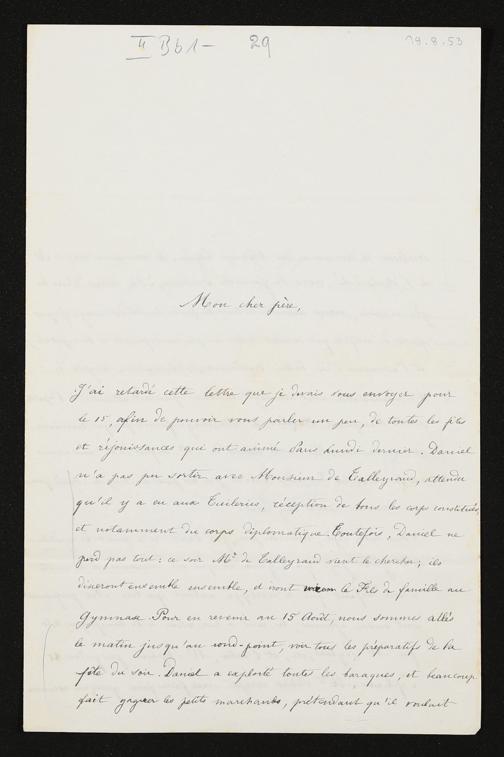 II Bb1 - 29
19.8.53
Mon cher père,
J'ai retardé cette lettre que je devais vous envoyer pour
le 15, afin de pouvoir vous parler un peu, de toutes les fêtes
et réjouissances qui ont animé Paris Lundi dernier. Daniel
n'a pas pu sortir avec Monsieur de Talleyrand, attendu
qu'il y a eu aux Tuileries, réception de tous les corps constitués,
et notamment du corps diplomatique. Toutefois, Daniel ne
perd pas tout: ce soir Mr de Talleyrand vient le chercher; ils
dineront ensemble ensemble, et iront le Fils de famille au
Gymnase. Pour en revenir au 15 Août, nous sommes allés
le matin jusqu'au rond-point, voir tous les préparatifs de la
fête du soir. Daniel a exploité toutes les baraques, et beaucoup
fait gagner les petits marchands, prétendant qu'il voulait